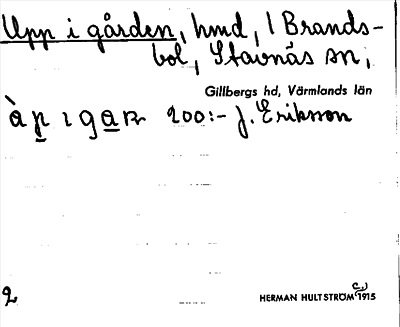 Upp i gården, hmd, 1 Brands-
bol, Stavnäs sn,
Gillbergs hd, Värmlands län
200:- J. Eriksson
2
HERMAN HULTSTRÖM 1915